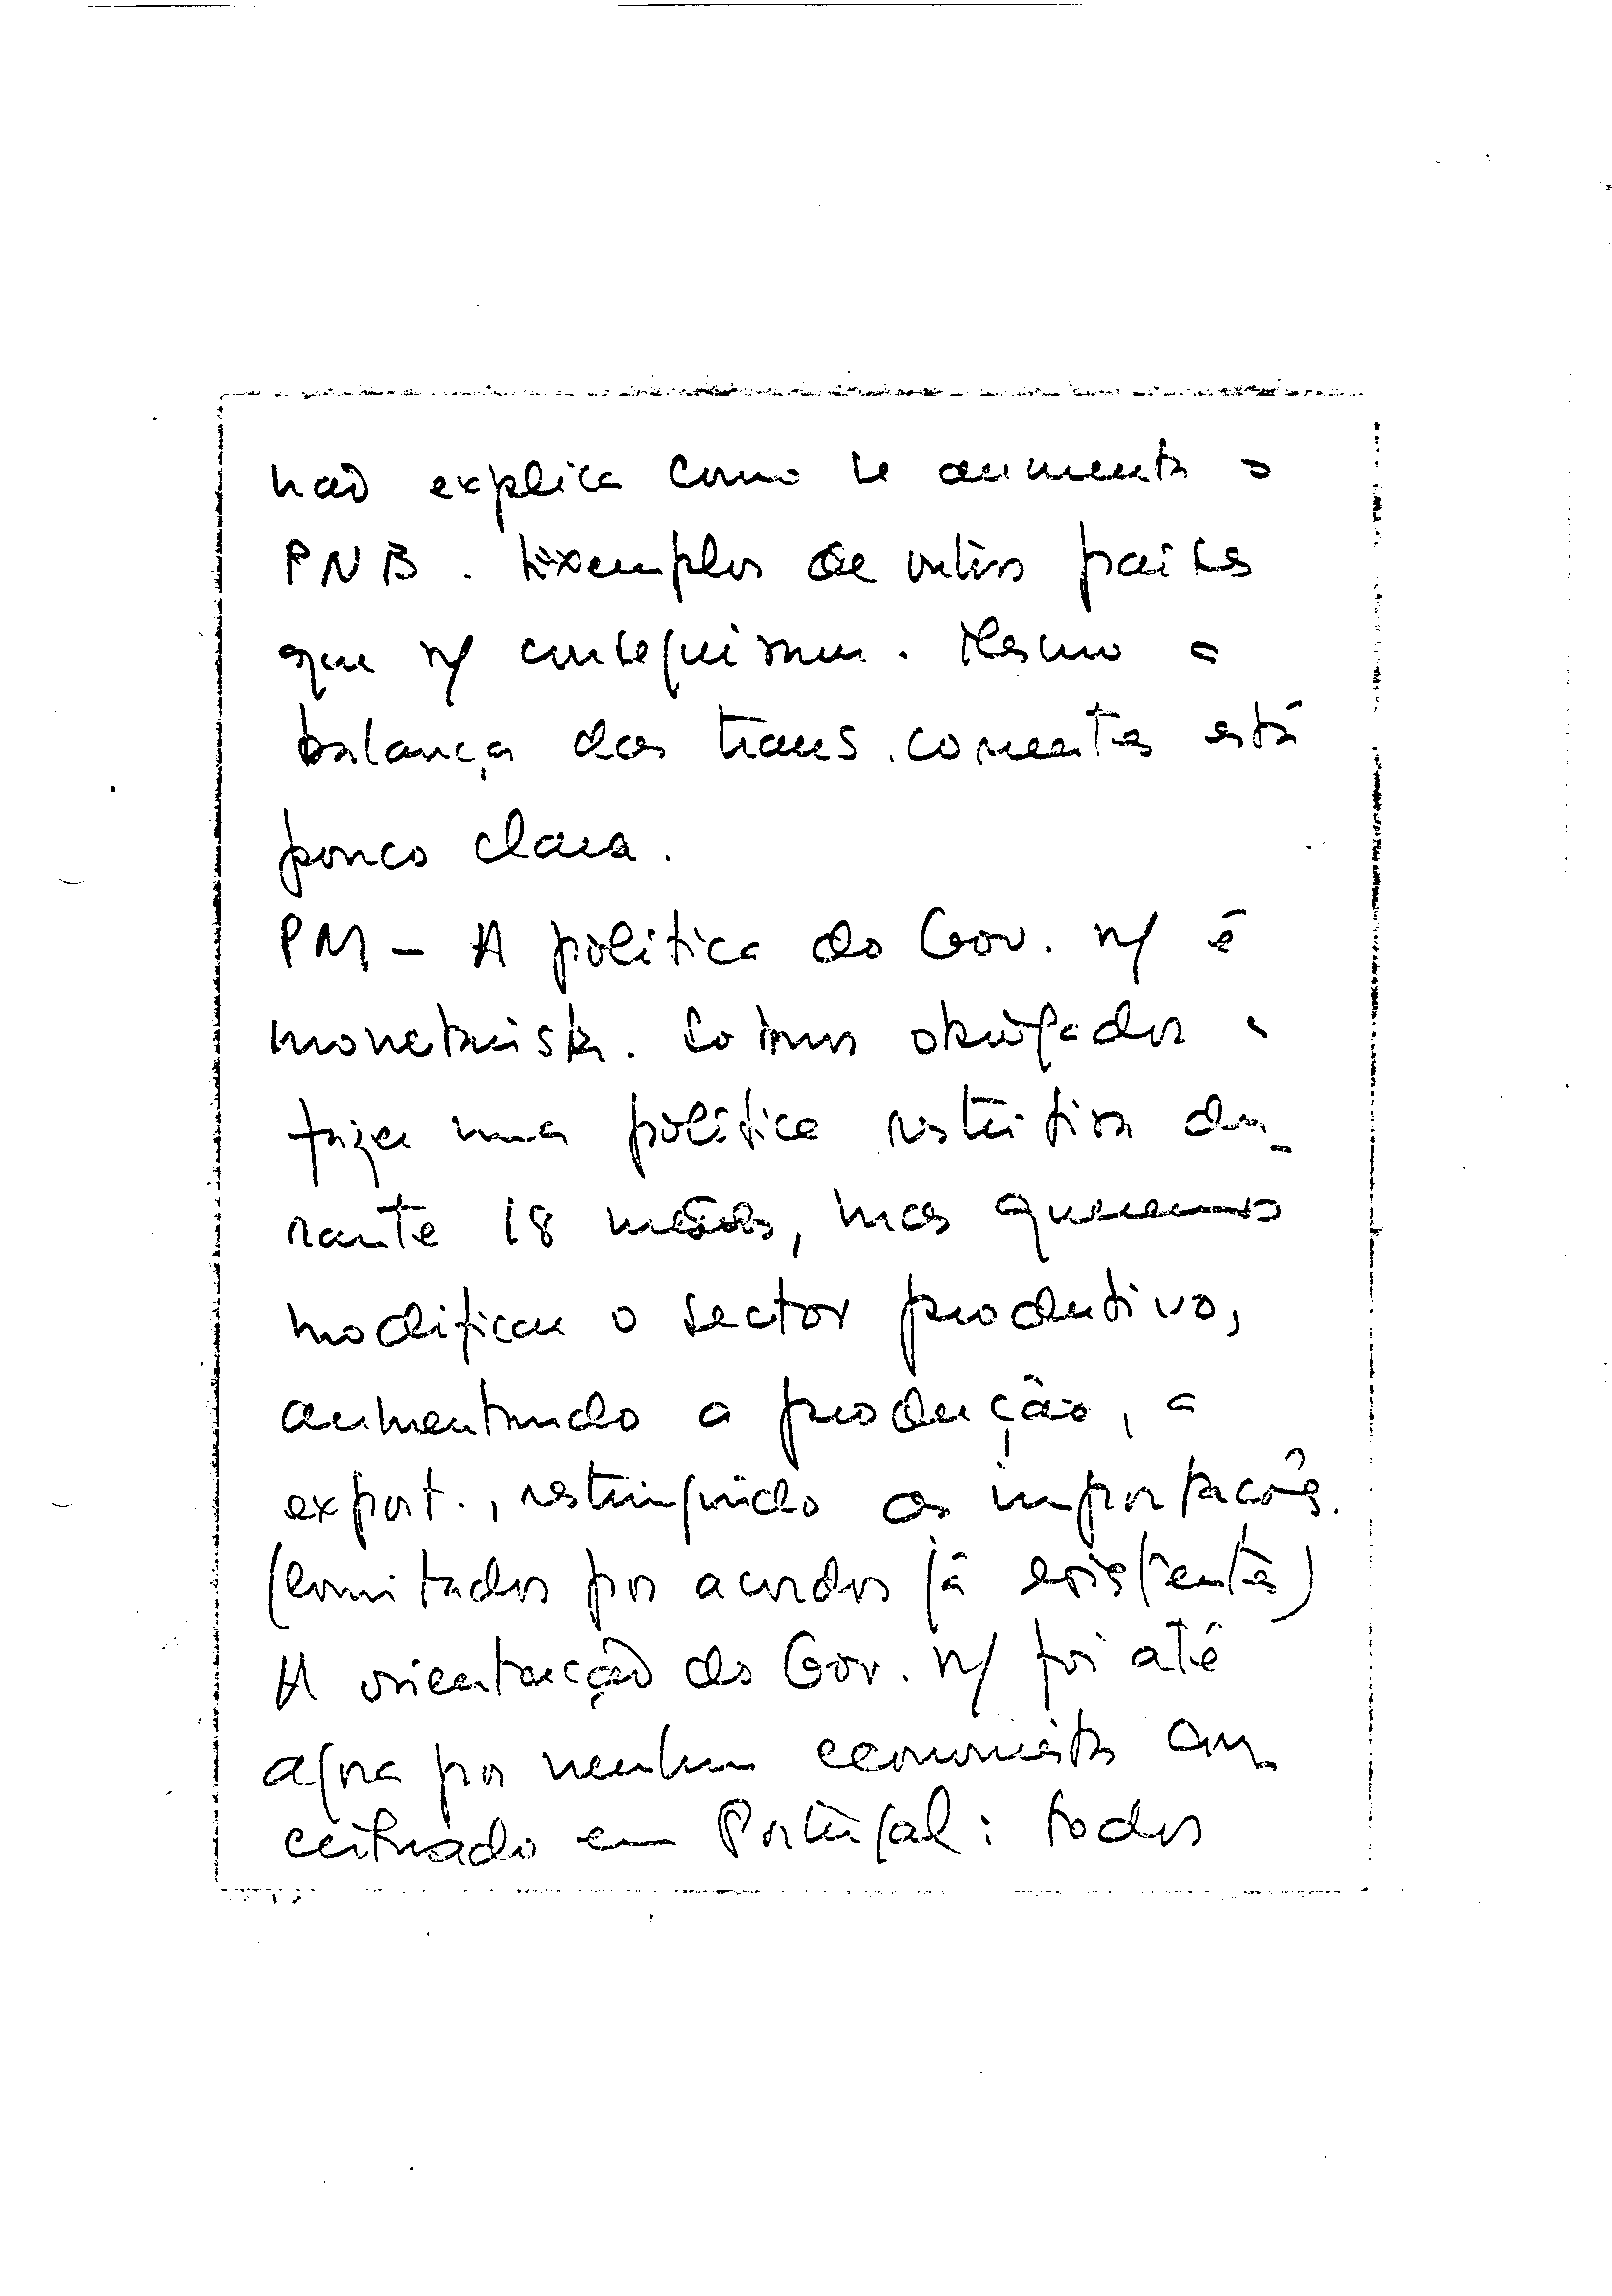 não explica como se aumenta o
PNB. Exemplos de outros países
que n/ conseguiram. Mesmo a
balança das trans. correntes está
pouco clara.
PM - A política do Gov. n/ é
monetarista. Somos obrigados a
fazer uma política restritiva du-
rante 18 meses, mas queremos
modificar o sector produtivo,
aumentando a produção, a
export., restringindo as importações.
(limitados por acordos já existentes)
A orientação do Gov. n/ foi até
agora por nenhum economista
em Portugal: todos